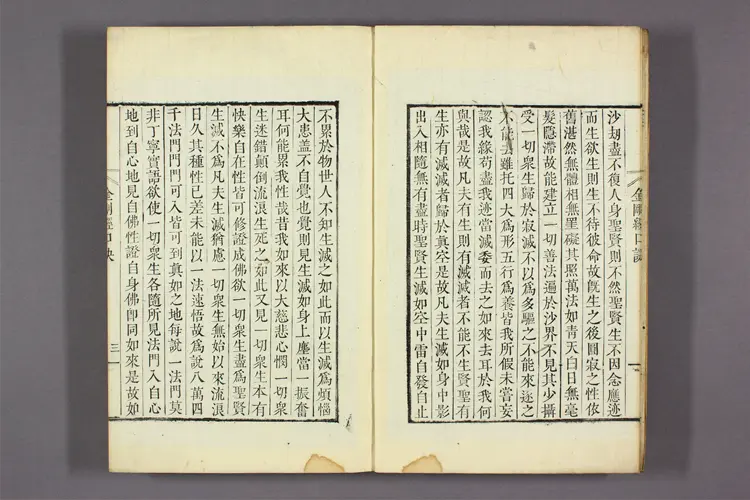 沙劫盡不復人身聖賢則不然聖賢生不因念應迹
而生欲生則生不待彼命故旣生之後圜寂之性依
舊湛然無體相無罣礙其照萬法如青天白日無毫
髮隱滯故能建立一切善法遍於沙界不見其少攝
受一切衆生歸於寂滅不以爲多驅之不能來逐之
不能去雖托四大爲形五行爲養皆我所假未甞妄
認我緣苟盡我迹當滅委而去之如來去耳於我何
與哉是故凡夫有生則有滅滅者不能不生賢聖有
生亦有滅滅者歸於眞空是故凡夫生滅如身中影
出入相隨無有盡時聖賢生滅如空中雷自發自止
不累於物世人不知生滅之如此而以生滅爲煩惱
大患盖不自覺也覺則見生滅如身上塵當一振奮
耳何能累我性哉昔我如來以大慈悲心憫一切衆
生迷錯顛倒流浪生死之如此又見一切衆生本有
快樂自在性皆可修證成佛欲一切衆生盡爲聖賢
生滅不爲凡夫生滅猶慮一切衆生無始以來流浪
日久其種性已差未能以一法速悟故爲說八萬四
千法門門門可入皆可到眞如之地每說一法門莫
非丁寧實語欲使一切衆生各隨所見法門入自心
地到自心地見自佛性證自身佛卽同如來是故如
金剛經口訣
三